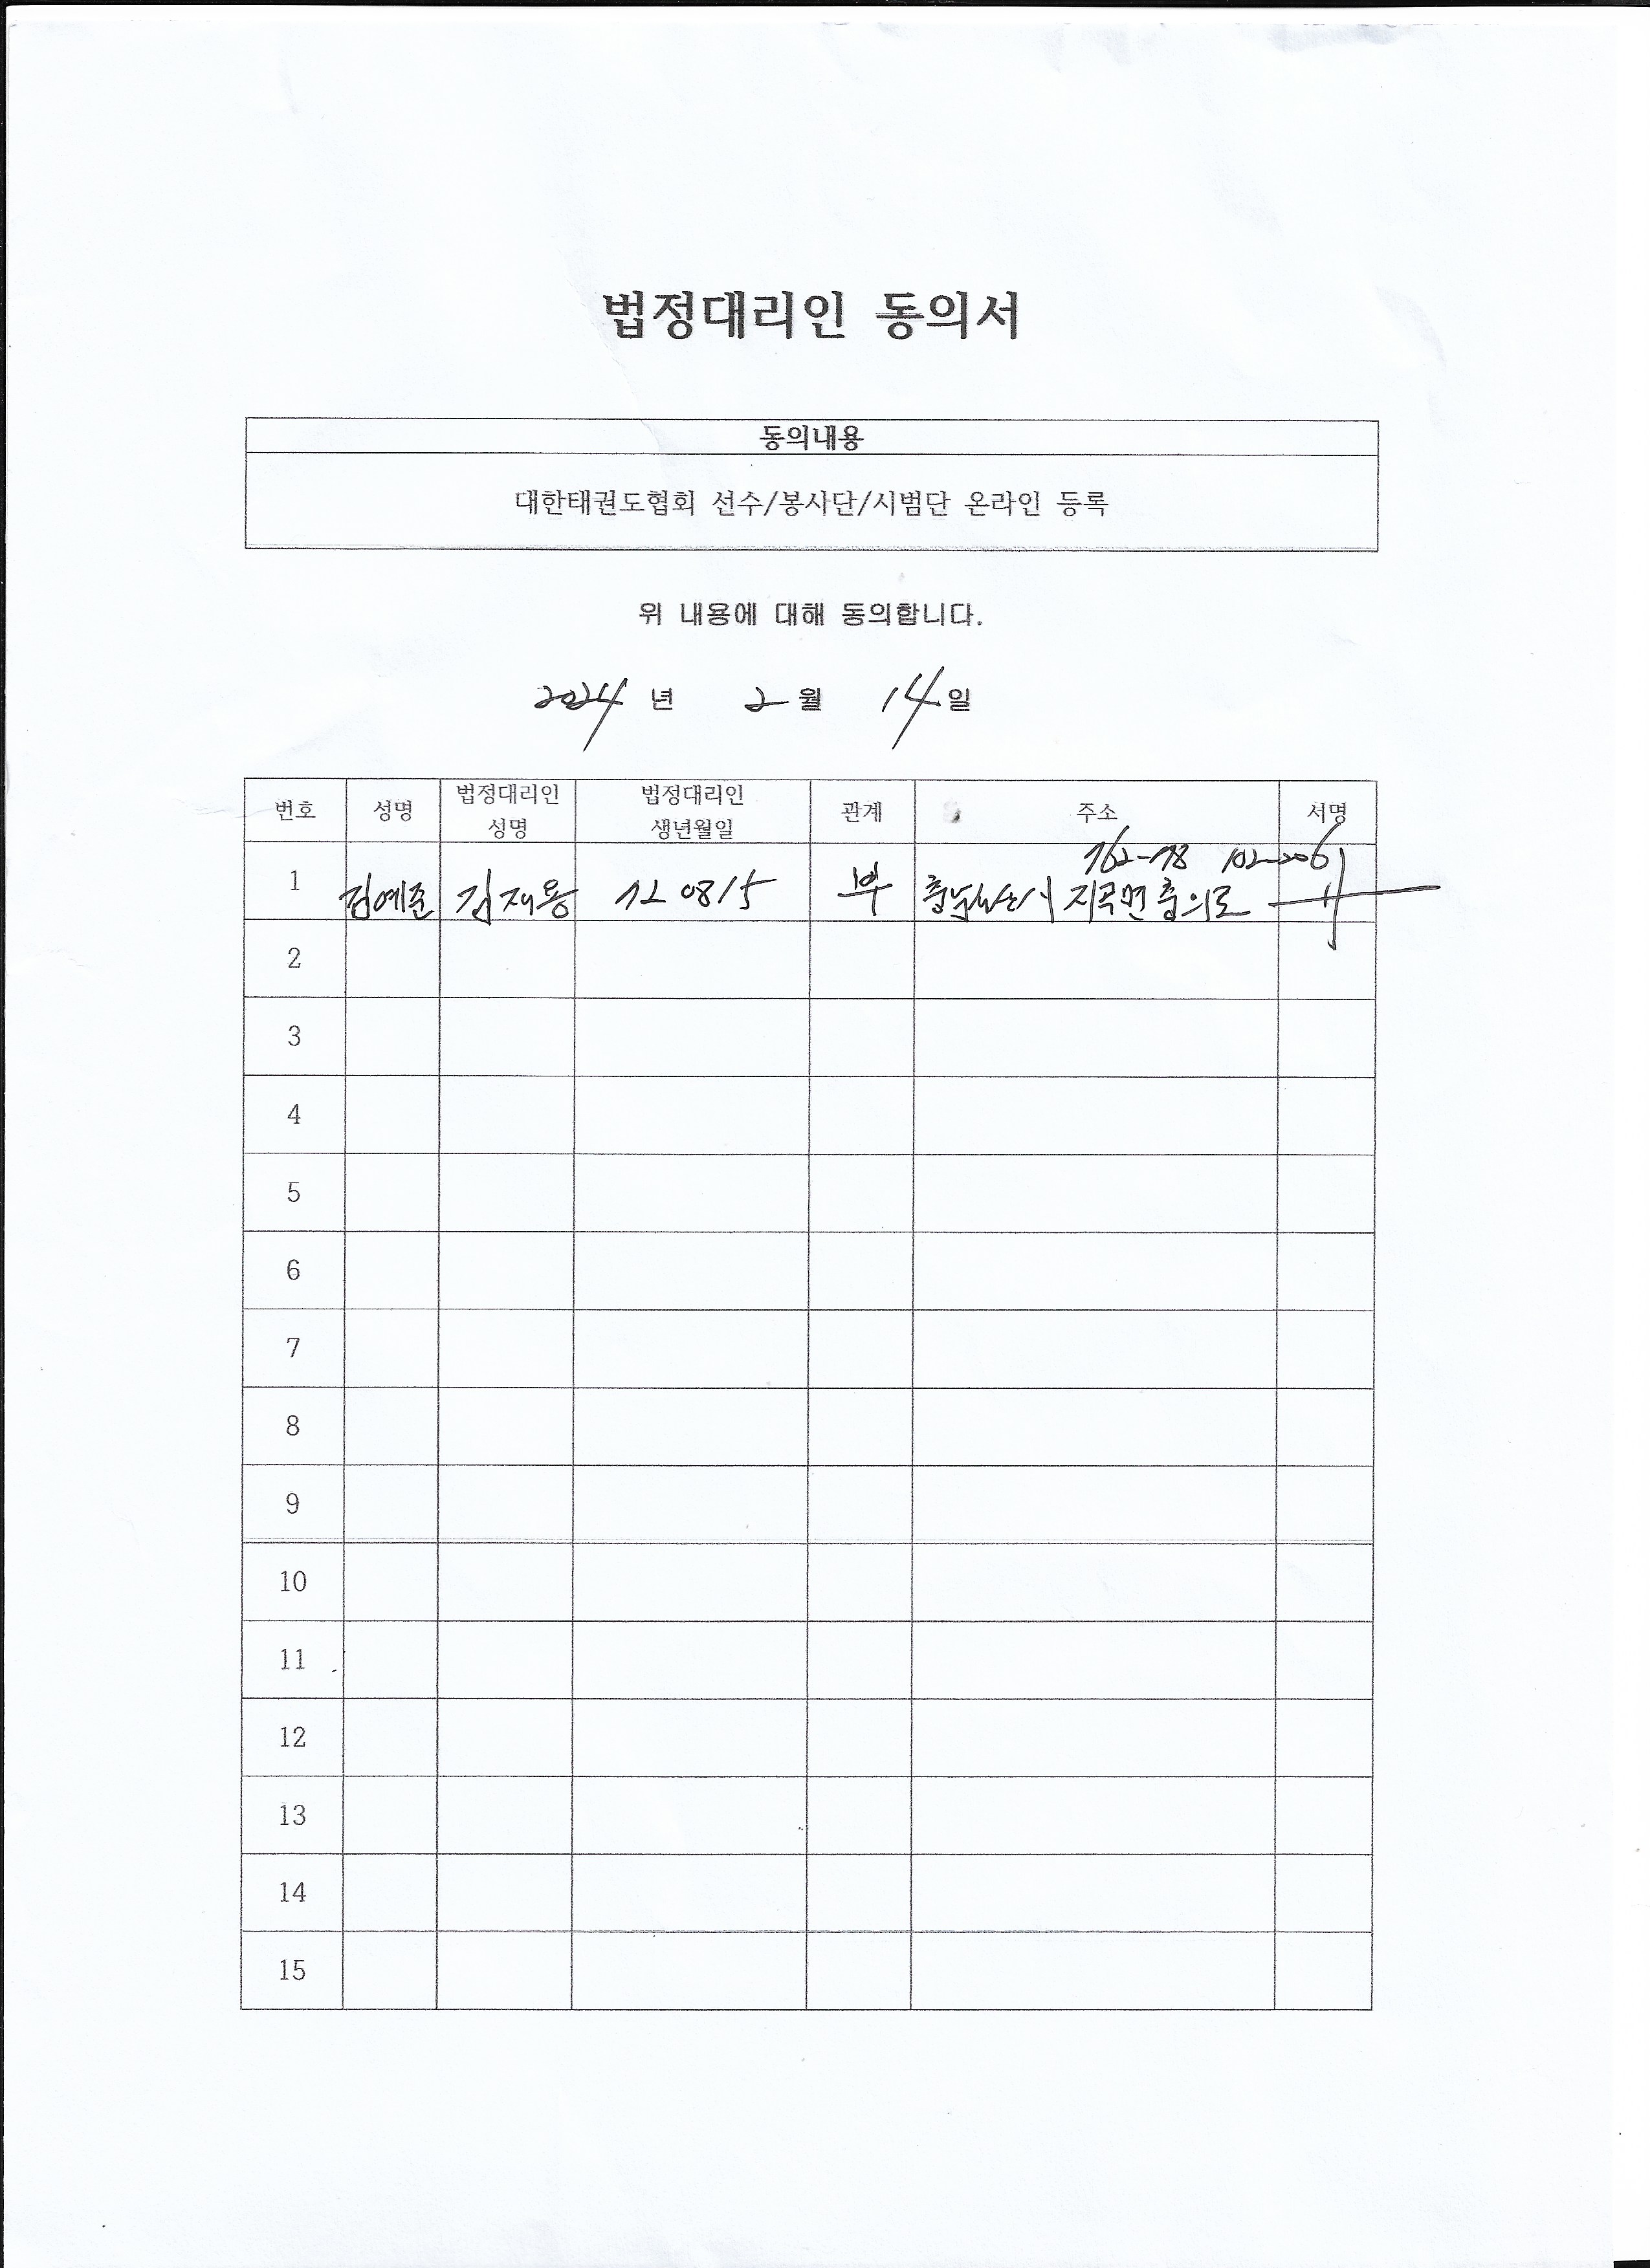 법정대리인 동의서
동의내용
대한태권도협회 선수/봉사단/시범단 온라인 등록
위 내용에 대해 동의합니다.
2024 년 2 월 14 일
번호 성명 법정대리인 성명 법정대리인 생년월일 관계 주소 서명
102-206
1 김예준 김재용 0815 부 지곡면 충의로
2
3
4
5
6
7
8
9
10
11
12
13
14
15